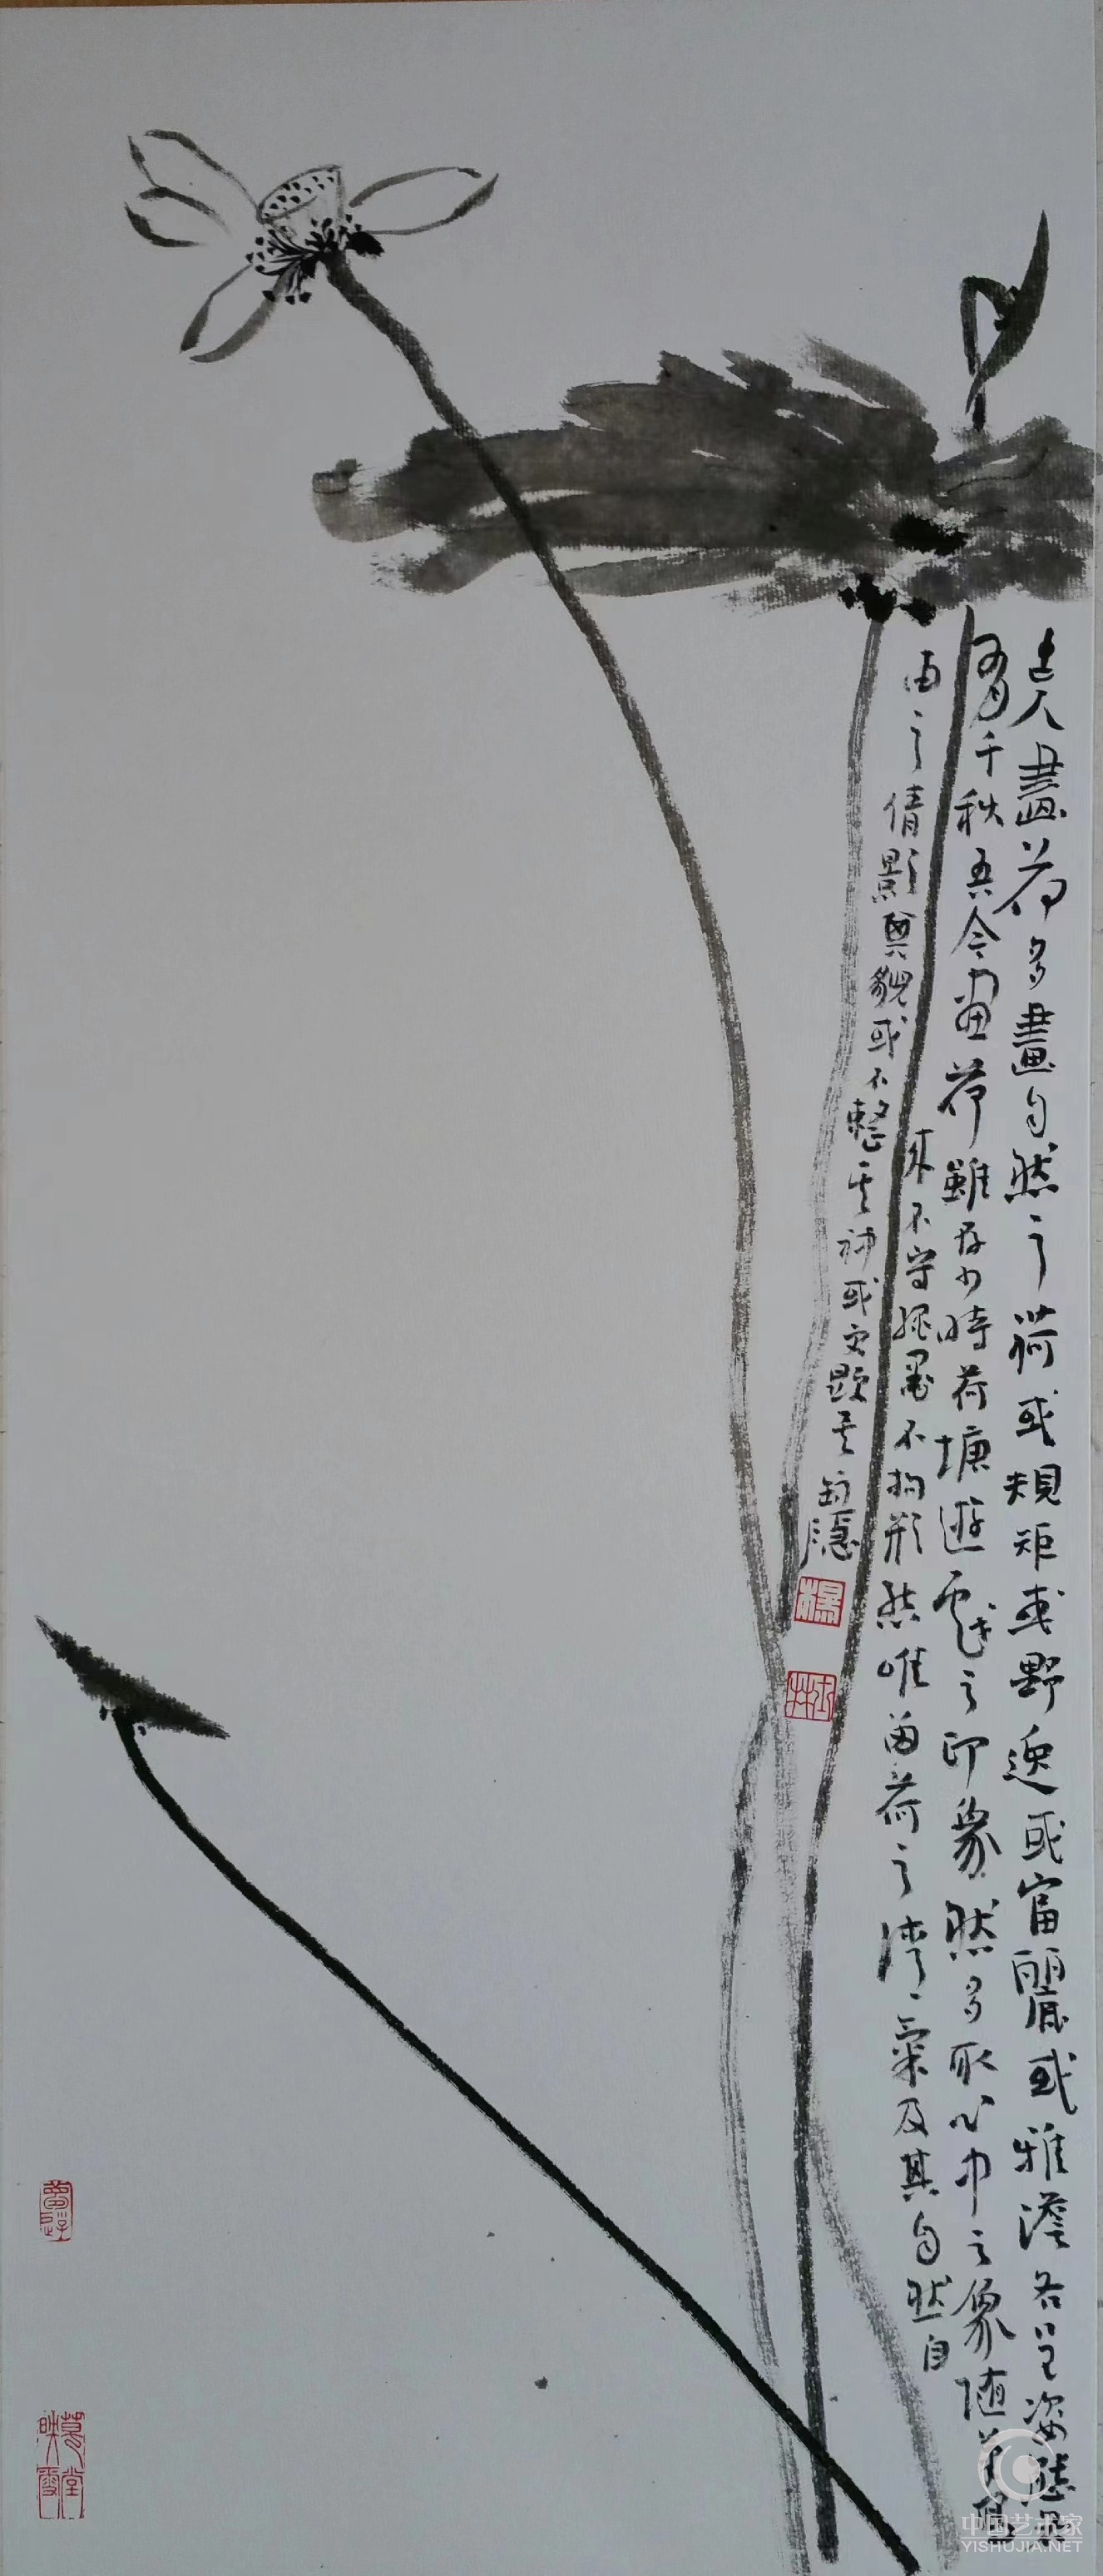 古人畫荷多畫自然之荷或規矩或野逸或富麗或雅澹各呈姿態各
有千秋吾今画荷雖存少時荷塘遊戲之印象然多取心中之象随笔寫
来不守繩墨不拘形然唯留荷之清氣及其自然自
由之倩影其貌或不整其神或可顯之
楊
中国艺术家
YISHUJIA.NET